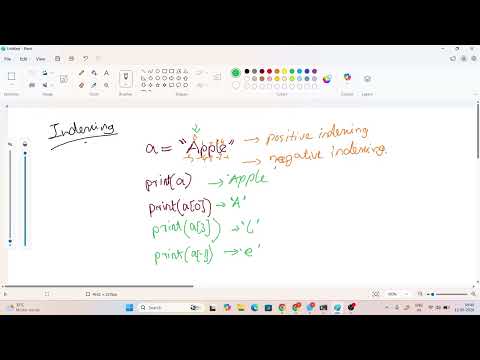 Untitled - Paint
File Edit View
Selection Image Tools Brushes Shapes Size Colors Copilot Layers
Indexing
a = "Apple"
→ positive indexing
→ negative indexing.
print(a) → 'Apple'
print(a[0]) → 'A'
print(a[3]) → 'L'
print(a[-1]) → 'e'
Search
ENG
IN